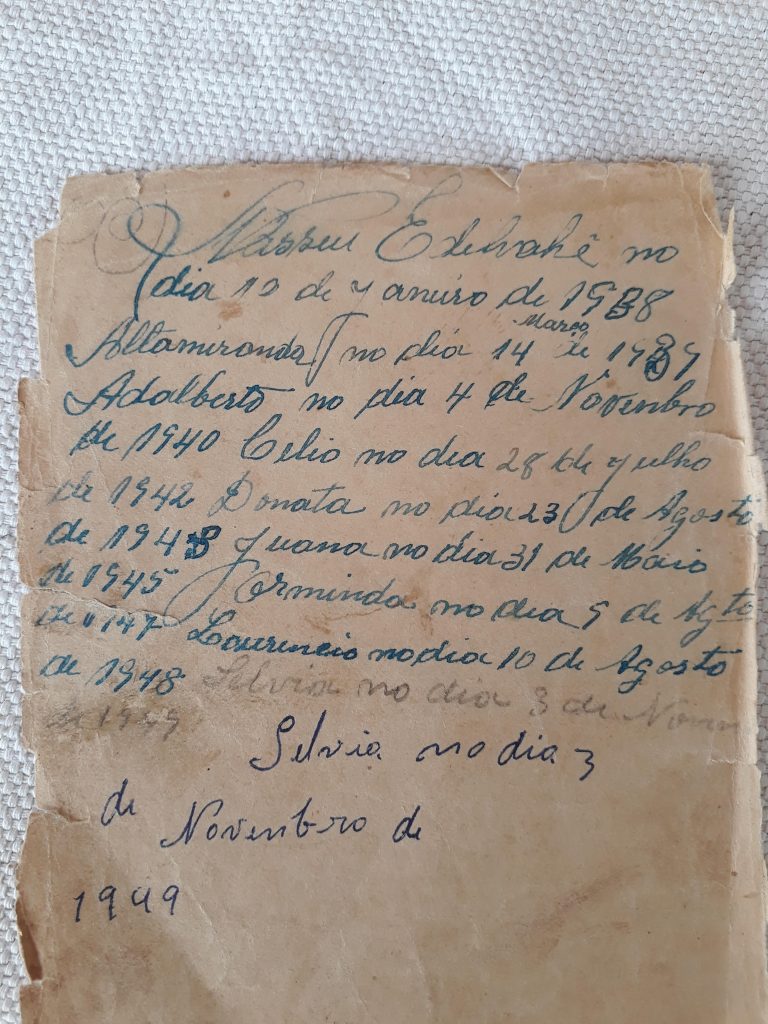 Nasseu Edelvahê no
dia 12 de Janeiro de 1938
Altamiranda no dia 14 de Março 1939
Adalberto no dia 4 de Novenbro
de 1940 Celio no dia 28 de Julho
de 1942 Donata no dia 23 de Agosto
de 1943 Juana no dia 31 de Maio
de 1945 Erminda no dia 9 de Agsto
de 1947 Laurencio no dia 10 de Agosto
de 1948 Selvia no dia 3 de Novem
de 1949
Selvia no dia 3
de Novenbro de
1949